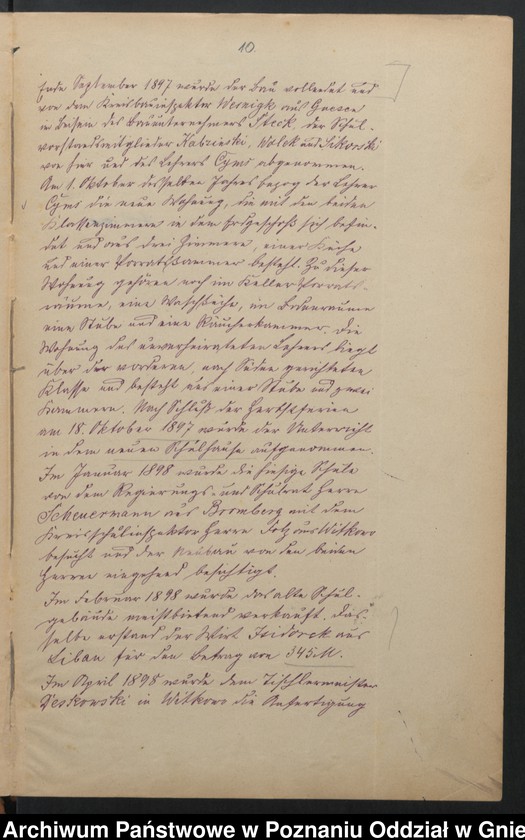 10
Ende September 1897 wurde der Bau vollendet und
von dem Kreisbauinspektor Wernigk aus Gnesen
im Beisein des Bauunternehmers Steck, der Schul-
vorstandsmitglieder Kabzinski, Wolek und Sikorski
von hier und des Lehrers Cyms abgenommen.
Am 1. Oktober desselben Jahres bezog der Lehrer
Cyms die neue Wohnung, die mit den beiden
Klassenzimmern in dem Erdgeschoß sich befin-
det und aus drei Zimmern, einer Küche
und einer Vorratskammer besteht. Zu dieser
Wohnung gehören noch im Keller Vorrats-
räume, eine Waschküche, im Bodenraume
eine Stube und eine Räucherkammer. Die
Wohnung des unverheirateten Lehrers liegt
über der vorderen, nach Süden gerichteten
Klasse und besteht aus einer Stube und zwei
Kammern. Nach Schluß der Herbstferien
am 18. Oktober 1897 wurde der Unterricht
in dem neuen Schulhause aufgenommen.
Im Januar 1898 wurde die hiesige Schule
von dem Regierungs- und Schulrat Herrn
Scheuermann aus Bromberg mit dem
Kreisschulinspektor Herrn Folz aus Witkowo
besucht und der Neubau von den beiden
Herren eingehend besichtigt.
Im Februar 1898 wurde das alte Schul-
gebäude meistbietend verkauft. Das-
selbe erstand der Wirt Isidorek aus
Libau für den Betrag von 345 M.
Im April 1898 wurde dem Tischlermeister
Leskowski in Witkowo die Anfertigung
Archiwum Państwowe w Poznaniu Oddział w Gnie